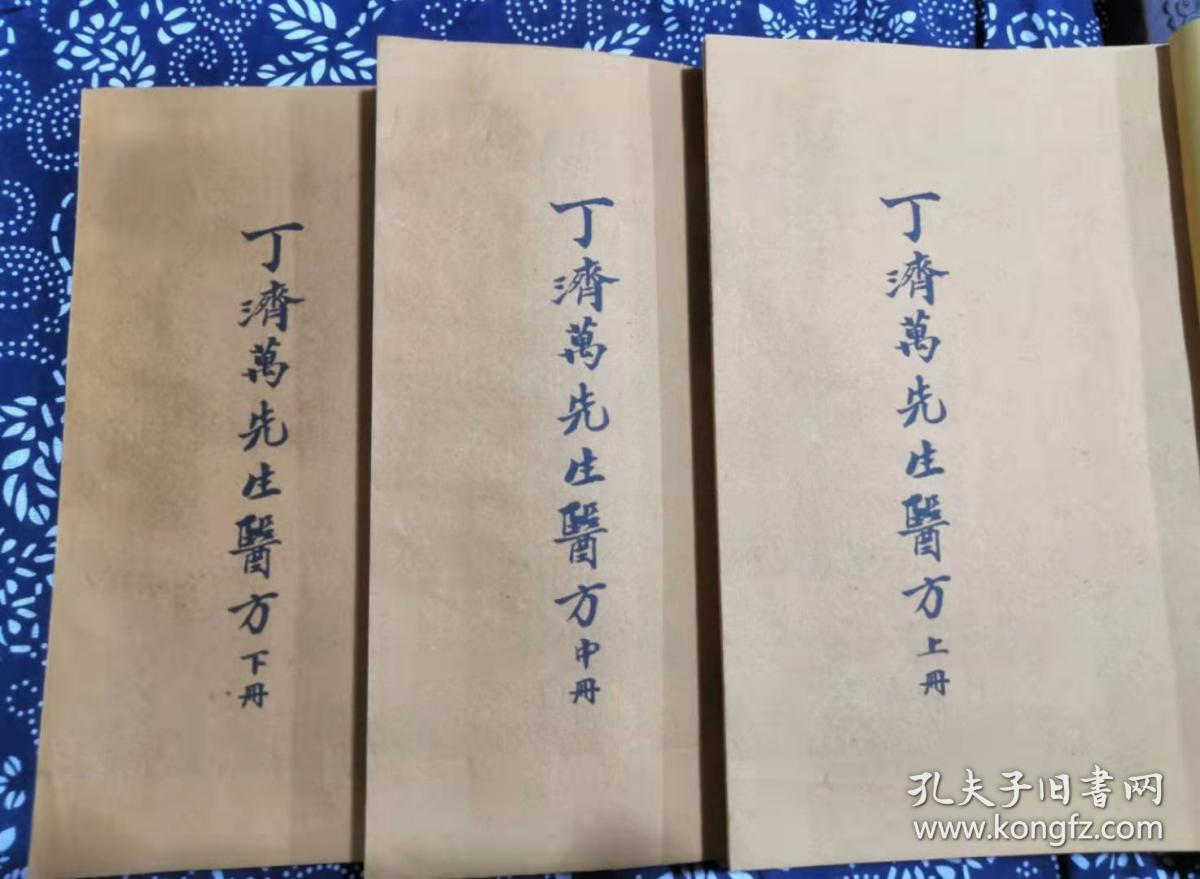 丁濟萬先生醫方上冊
丁濟萬先生醫方中冊
丁濟萬先生醫方下冊
孔夫子旧书网
www.kongfz.com